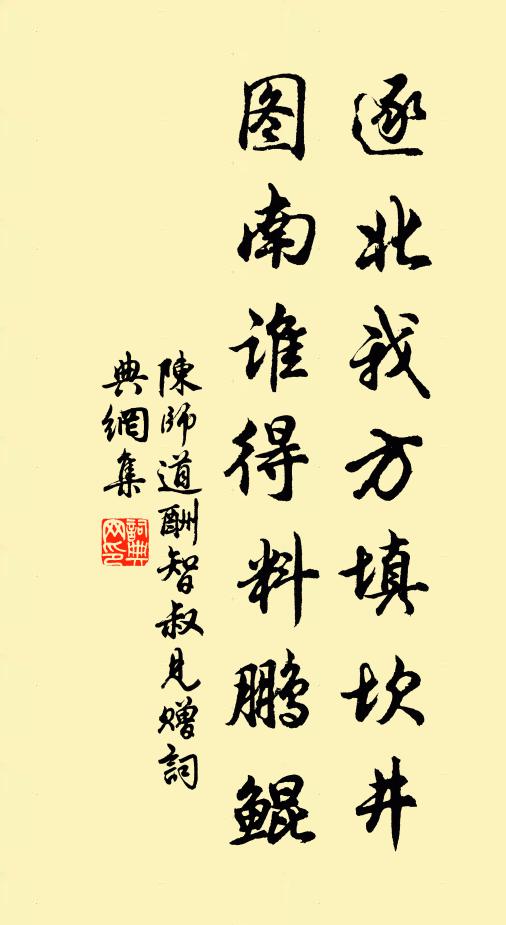 逐北我方填坎井
图南谁得料鹏鲲
陳師道酬智叔見贈詞
典網集
詞典网印